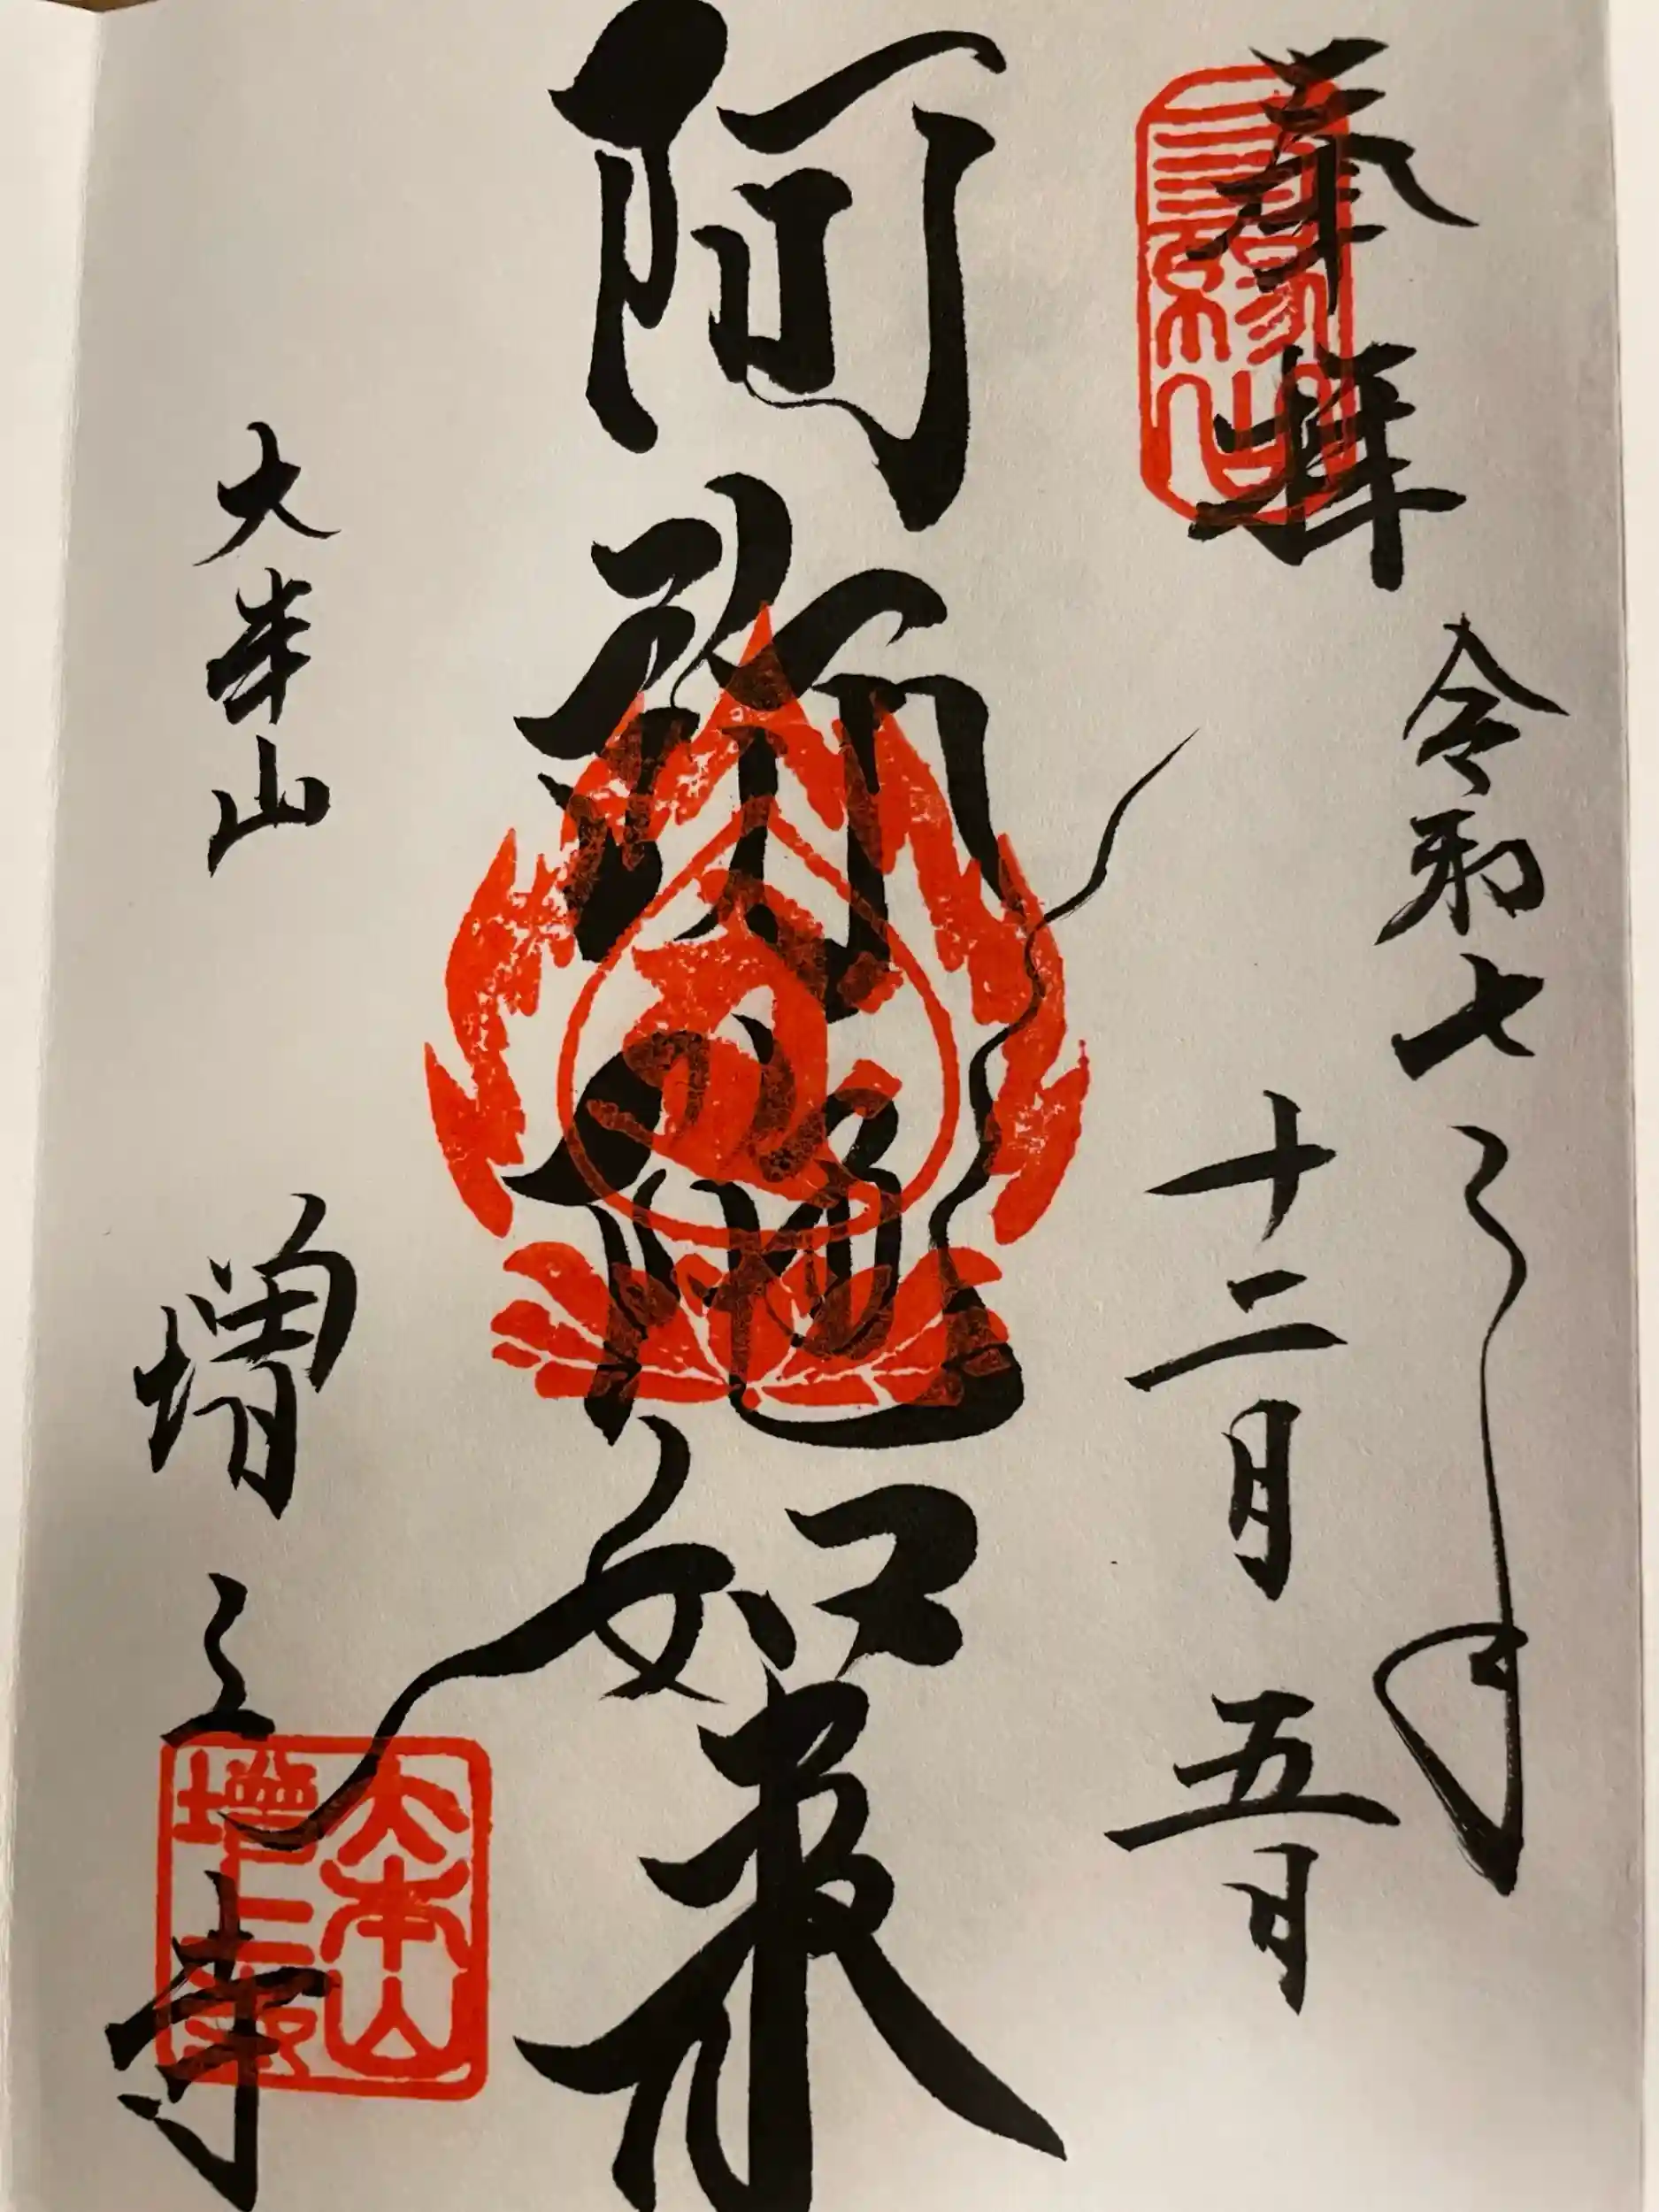 奉拝
三縁山
令和七年
十二月五日
阿弥陀如来
大本山
増上寺
大本山
増上寺